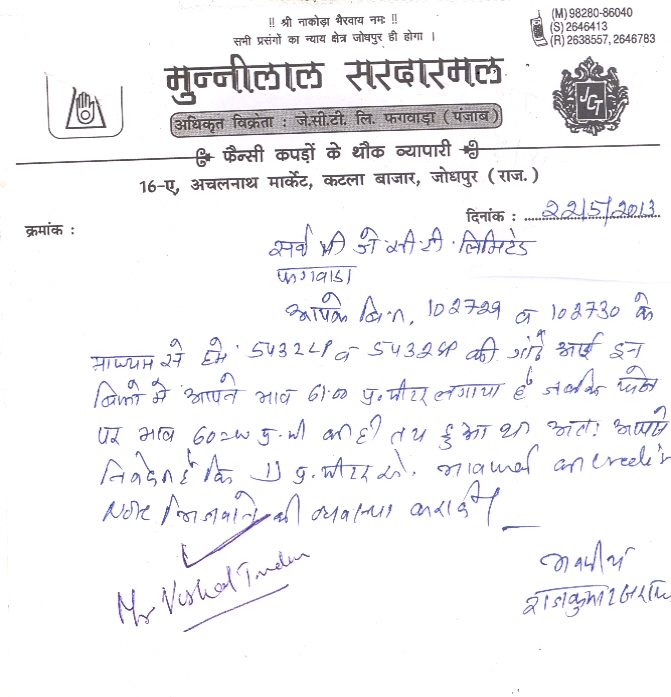 !! श्री नाकोड़ा भैरवाय नमः !!
सभी प्रसंगों का न्याय क्षेत्र जोधपुर ही होगा ।
(M) 98280-86040
(S) 2646413
(R) 2638557, 2646783
मुन्नीलाल सरदारमल
JCT
अधिकृत विक्रेता : जे.सी.टी. लि. फगवाड़ा (पंजाब)
फैन्सी कपड़ों के थौक व्यापारी
16-ए, अचलनाथ मार्केट, कटला बाजार, जोधपुर (राज.)
क्रमांक :
दिनांक : 22/5/2013
सर्व श्री जे सी टी लिमिटेड
फगवाडा
आपके बिल, 102729 व 102730 के
माध्यम से हमे 5432LP व 5432SP की गांठे आई इन
बिलो मे आपने भाव 61=00 प्र. मीटर लगाया है जबकि फोन
पर भाव 60=00 प्र. मी का ही तय हुआ था अतः आपसे
निवेदन है कि 1) प्र. मीटर से. भावफर्क का Credit
Note भिजवाने की व्यवस्था करावें।
भवदीय
राजकुमार
Mr Vishal